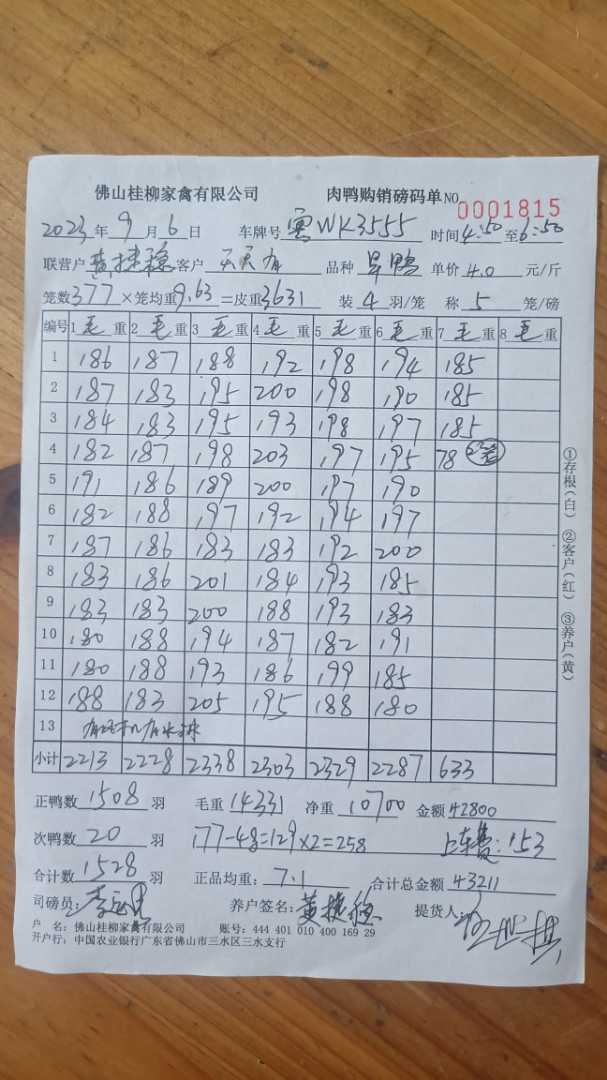 佛山桂柳家禽有限公司 肉鸭购销磅码单 NO 0001815
2023年9月6日 车牌号 WK3555 时间4:50至6:50
联营户 黄捷稳 客户 天天 品种 旱鸭 单价 4.0 元/斤
笼数377×笼均重9.63=皮重3631 装4羽/笼 称5笼/磅
编号 1毛重 2毛重 3毛重 4毛重 5毛重 6毛重 7毛重 8重
1 186 187 188 192 198 194 185
2 187 183 195 200 198 190 185
3 184 183 195 193 198 197 185
4 182 187 198 203 197 195 78
5 191 186 189 200 197 190
6 182 188 197 192 194 197
7 187 186 183 183 192 200
8 183 186 201 184 193 185
9 183 183 200 188 193 183
10 180 188 194 187 182 191
11 180 188 193 186 199 185
12 188 183 205 195 188 180
13
小计 2213 2228 2338 2303 2329 2287 633
正鸭数 1508 羽 毛重 14331 净重 10700 金额 42800
次鸭数 20 羽 177-48=129×2=258 上车费:153
合计数 1528 羽 正品均重: 7.1 合计总金额 43211
司磅员: 养户签名: 黄捷稳 提货人:
户 名: 佛山桂柳家禽有限公司 账号: 444 401 010 400 169 29
开户行: 中国农业银行广东省佛山市三水区三水支行
①存根(白) ②客户(红) ③养户(黄)